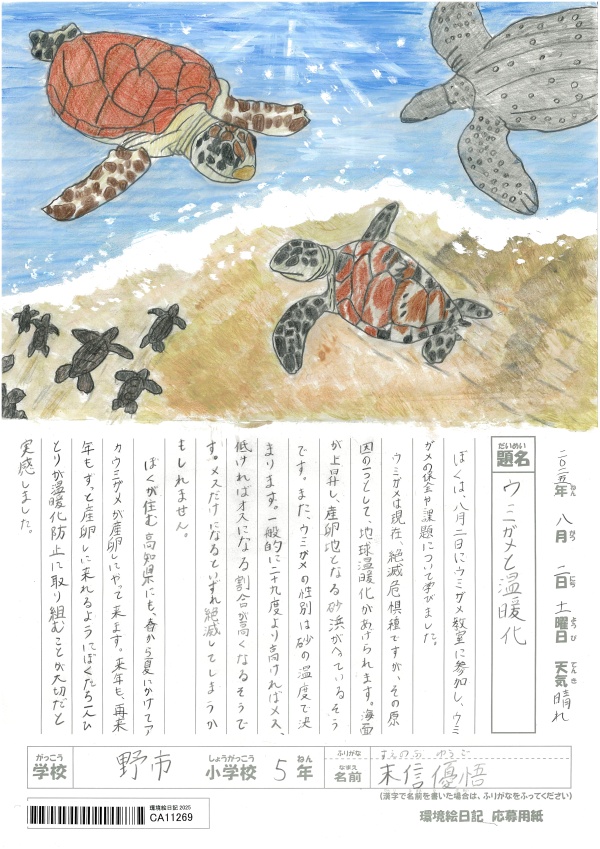 二〇二五年 八月 二日 土曜日 天気 晴れ
ねん がつ にち ようび てんき
だいめい
題名
ウミガメと温暖化
ぼくは、八月二日にウミガメ教室に参加し、ウミ
ガメの保全や課題について学びました。
ウミガメは現在、絶滅危惧種ですが、その原
因の一つとして、地球温暖化があげられます。海面
が上昇し、産卵地となる砂浜がへっているそう
です。また、ウミガメの性別は砂の温度で決
まります。一般的に二十九度より高ければメス、
低ければオスになる割合が高くなるそうで
す。メスだけになるといずれ絶滅してしまうか
もしれません。
ぼくが住む高知県にも、春から夏にかけてア
カウミガメが産卵しにやって来ます。来年も、再来
年もずっと産卵しに来れるようにぼくたち一人ひ
とりが温暖化防止に取り組むことが大切だと
実感しました。
がっこう しょうがっこう ねん ふりがな すえのぶ ゆうご
学校 野市 小学校 5 年 なまえ 名前 末信優悟
(漢字で名前を書いた場合は、ふりがなをふってください)
環境絵日記 2025
CA11269
環境絵日記 応募用紙